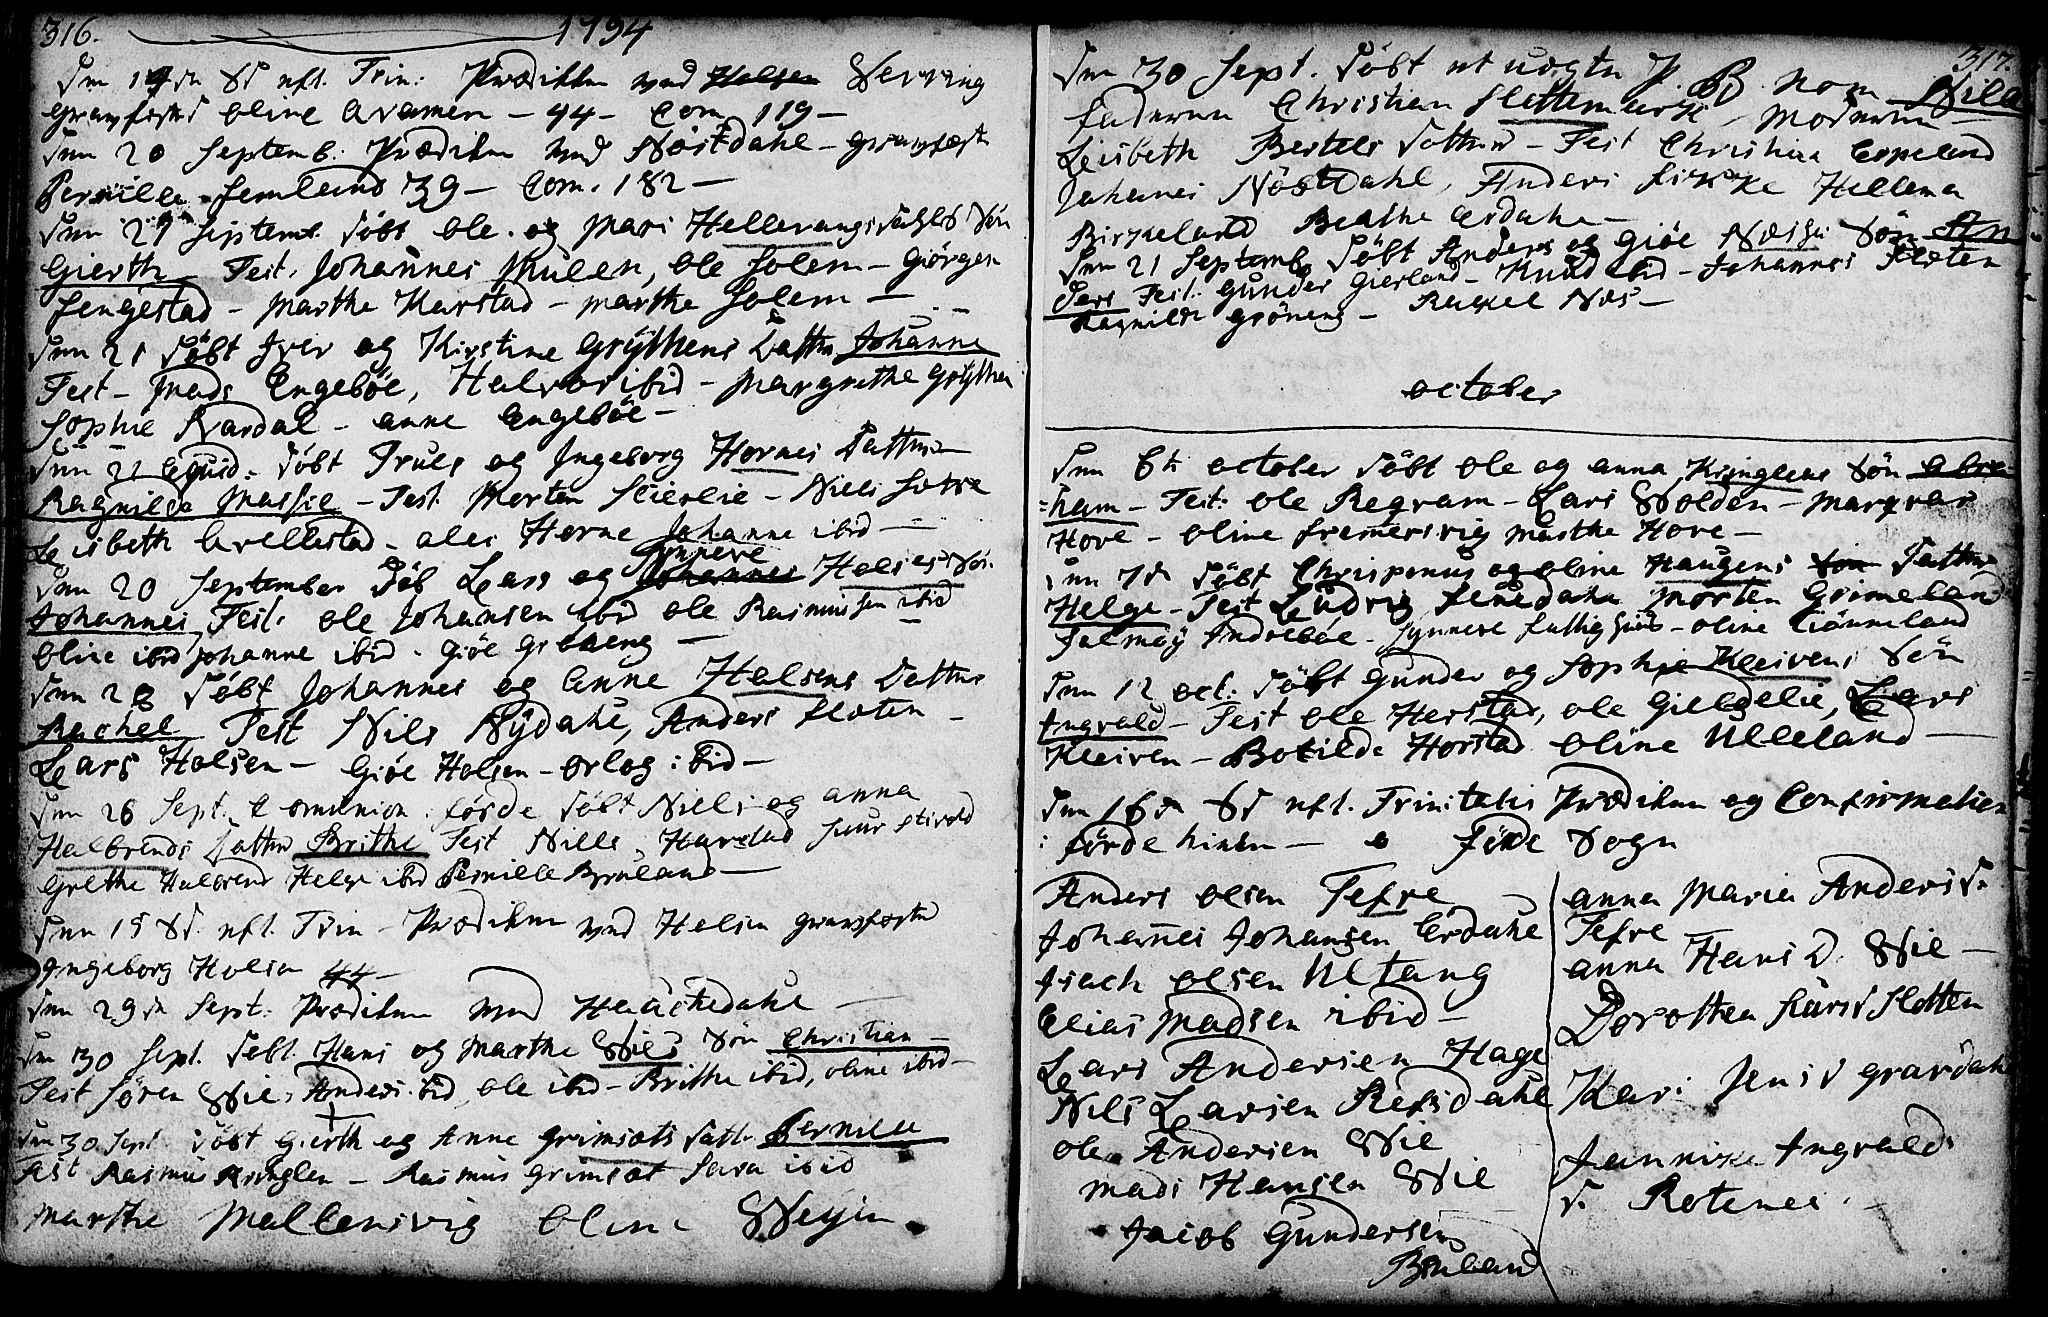 316.
1794
Den 14de Sd eft. Trin: Prædiken ved Holsen Werring
gravfæsted Oline Aramen - 44 - Com. 119 -
Den 20 Septemb. Prædiken ved Nøstdahl - gravfæst
Pernille Femland 39 - Com. 182 -
Den 21 Septemb. Døbt Ole og Mari Hellevangs Søn
Gierth - Test. Johannes Kulen, Ole Solem - Giørgen
Fengestad - Marthe Karstad - Marthe Solem -
Den 21 Døbt Iver og Kirstine Grÿthens Datter Johanne
Test - Mads Engebøe, Halvor ibid - Margrethe Grÿthen
Sophie Nardal - Anne Engebøe -
Den 21 Ejusd: Døbt Truls og Ingeborg Hornes Datter
Ragnilde Massie - Test. Morten Stierlie - Niels Sotre
Leisbeth Avellestad - Ales Horne Johanne ibid -
Den 20 September Døb Lars og Johannes Synneve Holsens Søn
Johannes Test. Ole Johansen ibid Ole Rasmussen ibid
Oline ibid Johanne ibid - Giøe Grøneng -
Den 28 Døbt Johannes og Anne Holsens Datter
Rachel Test Nils Nÿdahl, Anders Floten -
Lars Holsen - Giøe Holsen - Orlog ibid -
Den 28 Sept. Communion Førde Døbt Niels og Anna
Halbrends Datter Brithe Test Niels Harstad
Grethe Halbrend Helge ibid Pernille Bruland -
Den 15 Sd. eft. Trin - Prædiken ved Holsen gravfæsted
Ingeborg Holsen 44 -
Den 29de Sept. Prædiken ved Hauckedahl -
Den 30 Sept. Døbt Hans og Marthe Wies Søn Christian -
Test Søren Wie, Anders ibid, Ole ibid - Brithe ibid, Oline ibid -
Den 30 Sept. Døbt Gierth og Anne Grimsæts Datt. Pernille
Test Rasmus Kringlen - Rasmus Grimsæt Sara ibid
Marthe Mallensvig Oline
317.
Den 30 Sept. Døbt et uægte P. B. Nom Nila
Faderen Christian Slottemark - Moderen
Leisbeth Bertels Datter - Test Christina Espeland
Johanes Nøstdahl, Anders Kirke Hellema
Birkeland Beathe Erdahl -
Den 21 Septemb. Døbt Anders og Giøe Næsses Søn An
ders Test. Gunder Gierland - Knud ibid - Johannes Floten
Ragnilde Grøneng - Rachel Næs -
October
Den 6te October Døbt Ole og Anna Kringlens Søn Abra
=ham - Test. Ole Regram - Lars Wolden - Margrete
Hove - Oline Fremersvig Marthe Hove -
Den 7de Døbt Chrispinus og Oline Haugens Søn Datter
Helge - Test Ludvig Femedahl Morten Grimeland
Salmøy Andrebøe - Synneve - Oline Tiønneland
Den 12 Oct. Døbt Gunder og Sophie Kleivens Søn
Ingvald - Test Ole Herstad, Ole Gieldelie, Lars
Kleiven - Botilde Horstad Oline Ulleland -
Den 16de Sd eft. Trinitatis Prædiken og Confirmation
i Førde kirken - Førde Sogn
Anders Olsen Tefre
Johannes Johansen Erdahl
Isach Olsen Ultang
Elias Madsen ibid -
Lars Andersen Hage
Nils Larsen Refsdahl
Ole Andersen Wie
Mads Hansen Wie
Jacob Gundersen
Bruland
Anna Maria Anders D.
Tefre
Anna Hans D. Wie -
Dorothea Slotten
Kari Jens D Grardahl
Jannike Ingvalds
D. Rotenes.